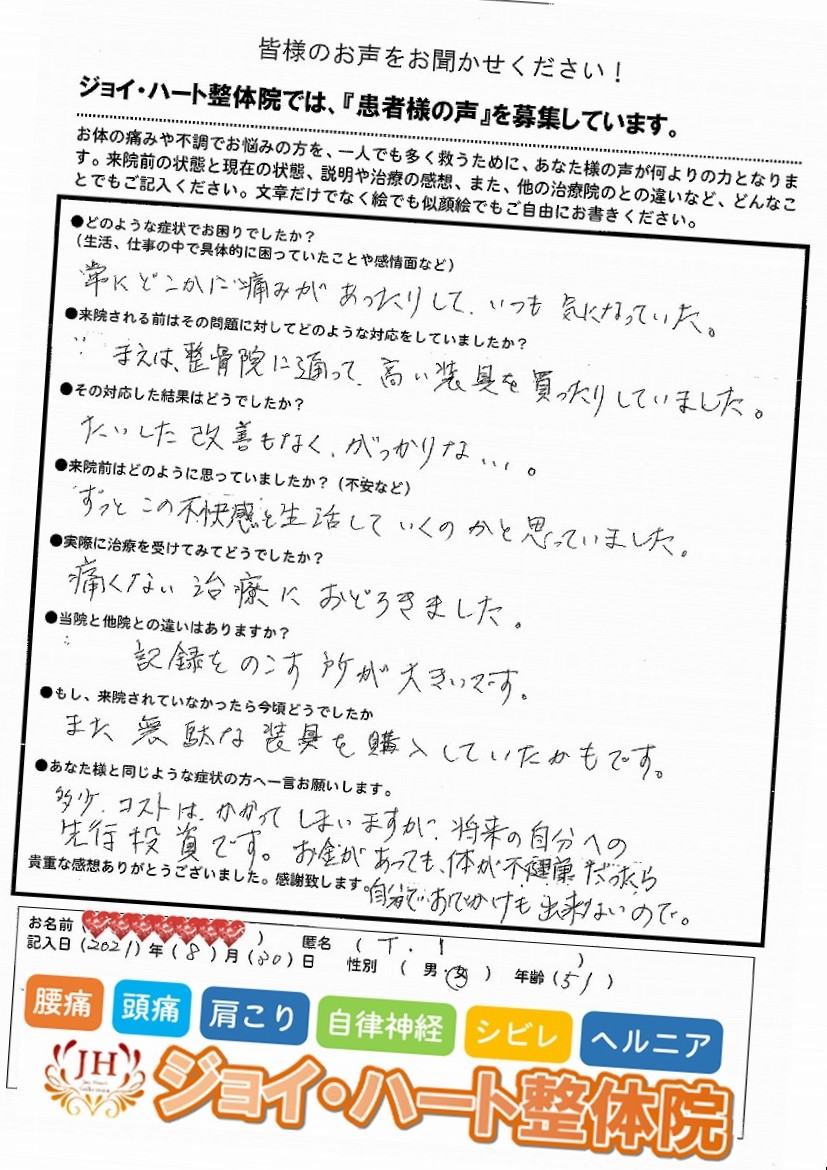 皆様のお声をお聞かせください！
ジョイ・ハート整体院では、『患者様の声』を募集しています。
お体の痛みや不調でお悩みの方を、一人でも多く救うために、あなた様の声が何よりの力となりま
す。来院前の状態と現在の状態、説明や治療の感想、また、他の治療院のとの違いなど、どんなこ
とでもご記入ください。文章だけでなく絵でも似顔絵でもご自由にお書きください。
●どのような症状でお困りでしたか？
（生活、仕事の中で具体的に困っていたことや感情面など）
常にどこかに痛みがあったりして、いつも気になっていた。
●来院される前はその問題に対してどのような対応をしていましたか？
まえは、整骨院に通って、高い装具を買ったりしていました。
●その対応した結果はどうでしたか？
たいした改善もなく、がっかりな...。
●来院前はどのように思っていましたか？（不安など）
ずっとこの不快感と生活していくのかと思っていました。
●実際に治療を受けてみてどうでしたか？
痛くない治療におどろきました。
●当院と他院との違いはありますか？
記録をのこす所が大きいです。
●もし、来院されていなかったら今頃どうでしたか
また無駄な装具を購入していたかもです。
●あなた様と同じような症状の方へ一言お願いします。
多少、コストは、かかってしまいますが、将来の自分への
先行投資です。お金があっても、体が不健康だったら
自分でおでかけも出来ないので。
貴重な感想ありがとうございました。感謝致します。
お名前 ） 匿名（T.I ）
記入日（2021）年（8）月（30）日 性別（男・女）年齢（51）
腰痛 頭痛 肩こり 自律神経 シビレ ヘルニア
JH
ジョイ・ハート整体院